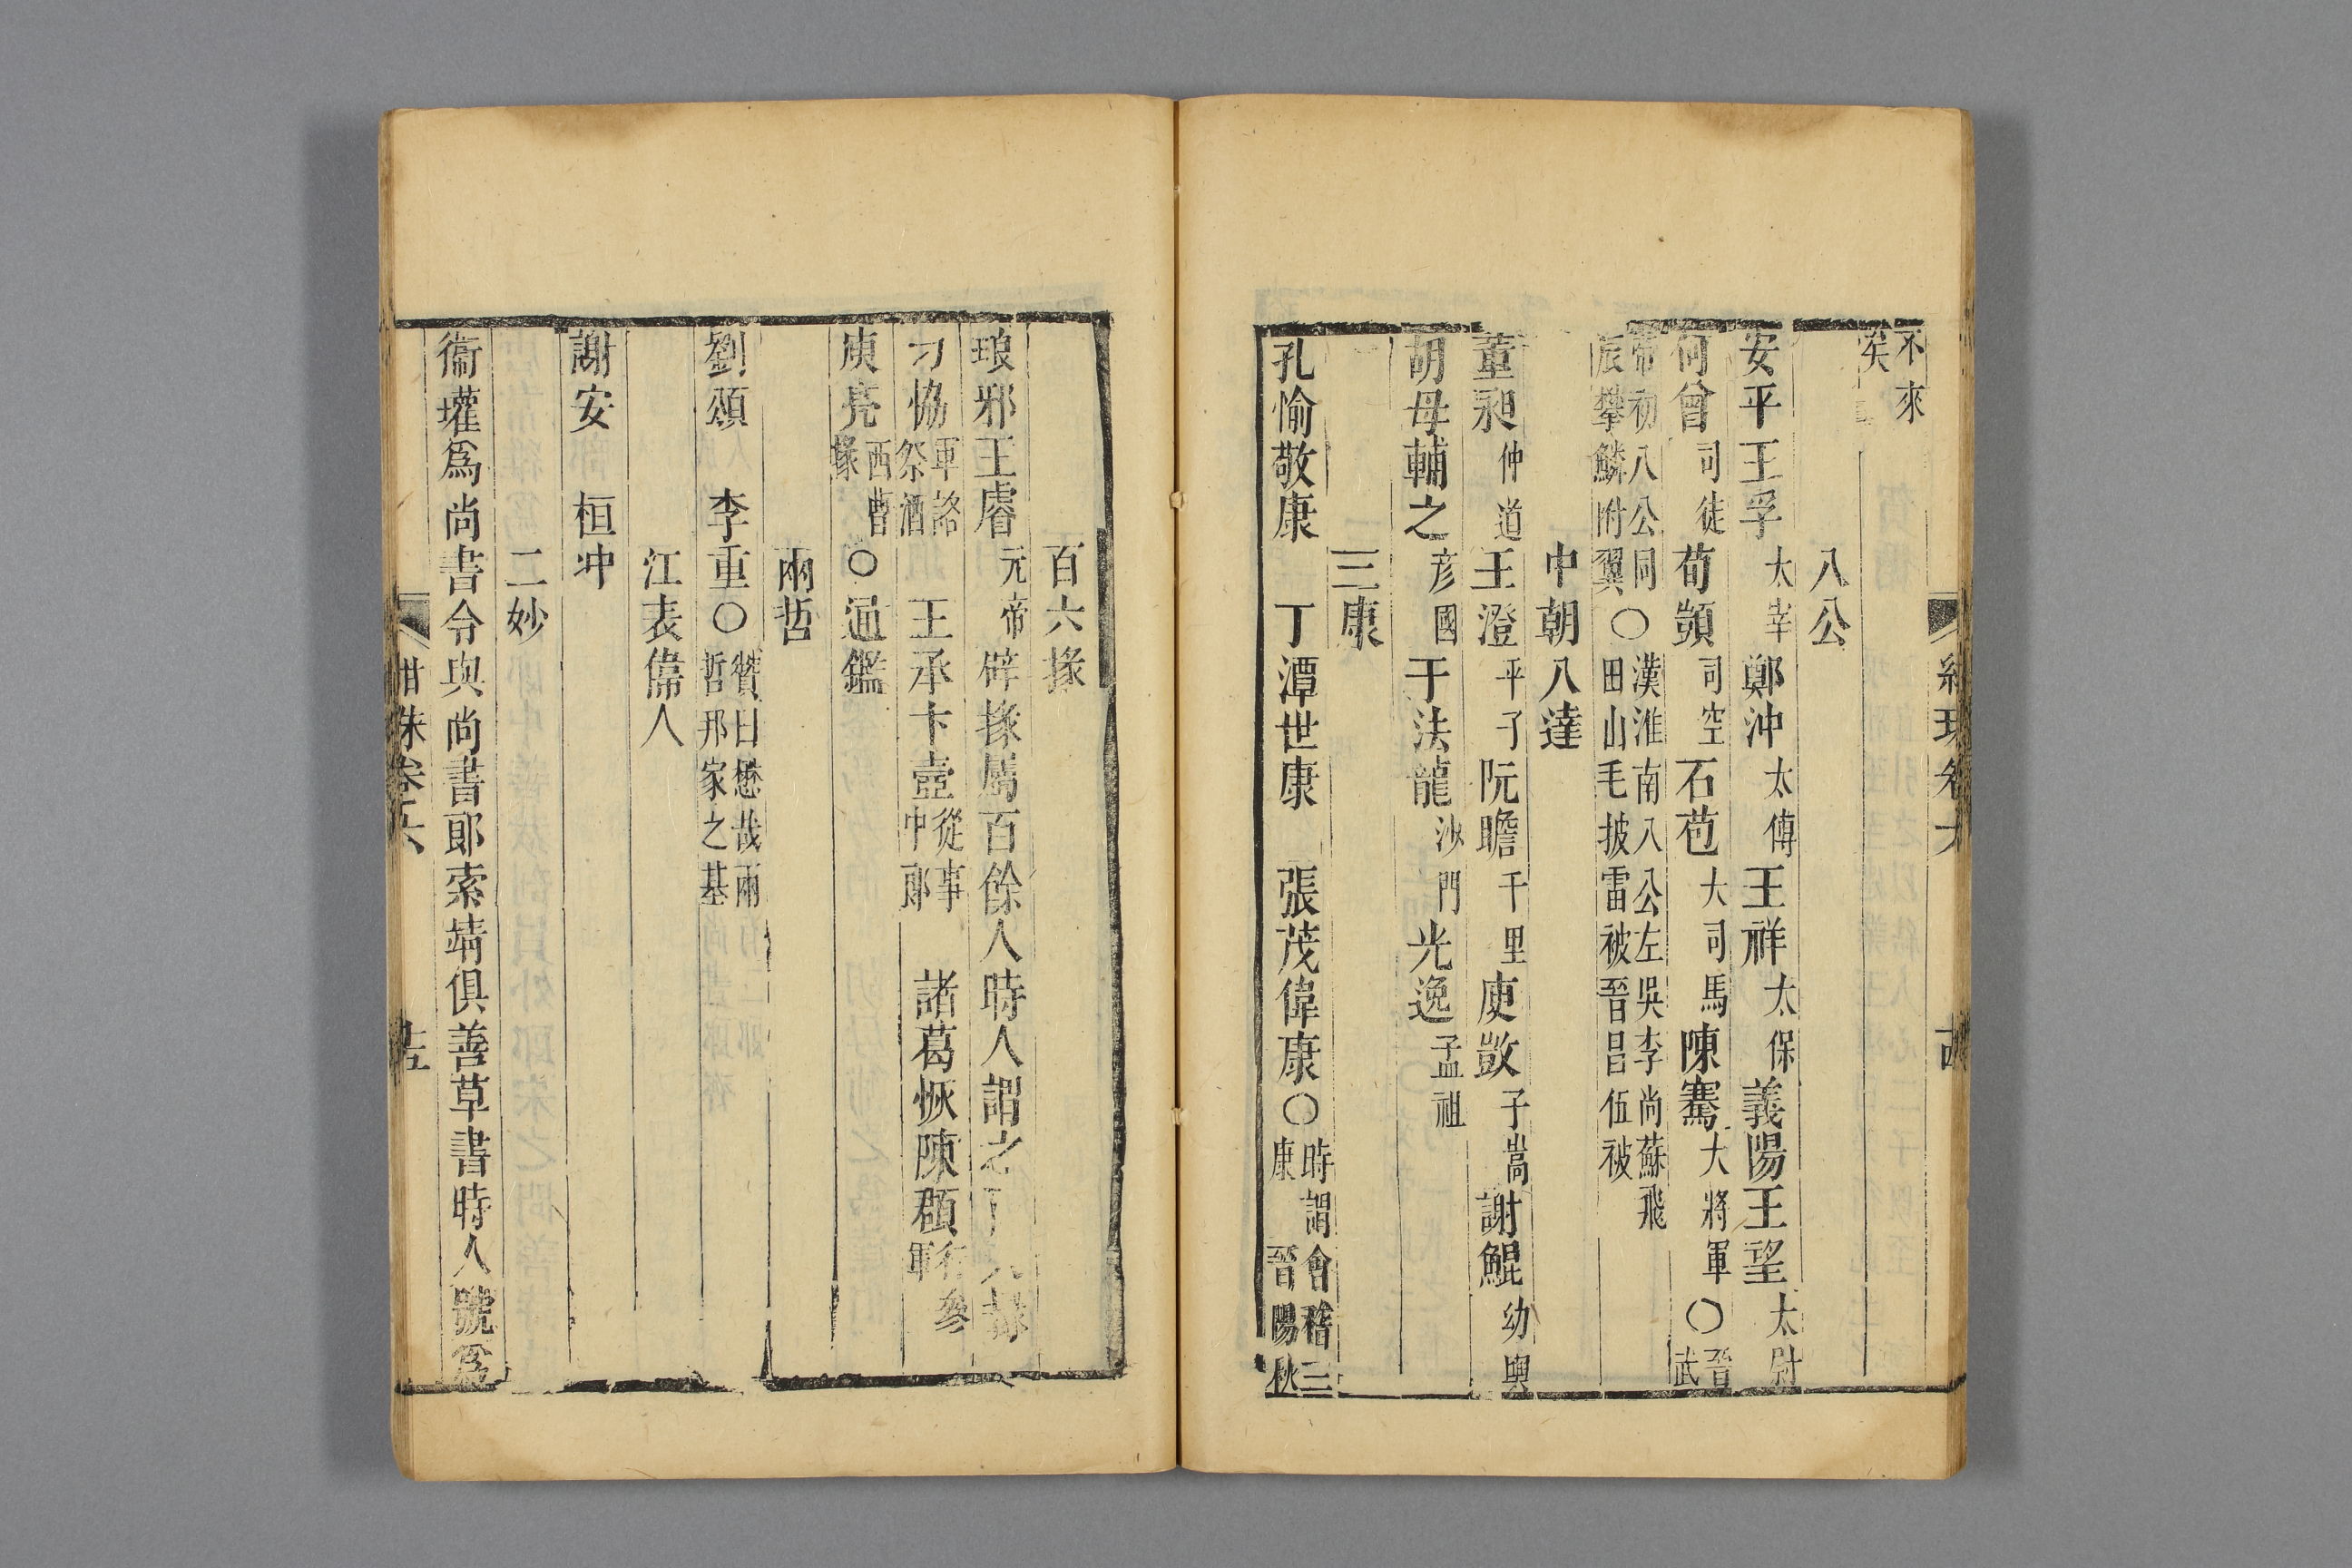 不來
矣
八公
安平王孚太宰 鄭沖太傅 王祥太保 義陽王望太尉
何曾司徒 荀顗司空 石苞大司馬 陳騫大將軍〇晉武
帝初八公同辰攀鱗附翼〇漢淮南八公左吳李尚蘇飛田山毛披雷被晉昌伍被
中朝八達
董昶仲道 王澄平子 阮瞻千里 庾敳子嵩 謝鯤幼輿
胡母輔之彦國 于法龍沙門 光逸孟祖
三康
孔愉敬康 丁潭世康 張茂偉康〇時謂會稽三康 晉陽秋
百六掾
琅邪王睿元帝 辟掾屬百餘人時人謂之百六掾
刁協軍諮祭酒 王承卞壼從事中郎 諸葛恢陳頵行參軍
庾亮西曹掾〇通鑑
兩哲
劉頌 李重〇贊曰懋哉兩哲邦家之基
江表偉人
謝安 桓沖
二妙
衞瓘爲尚書令與尚書郎索靖俱善草書時人號爲
紺珠卷六
十五